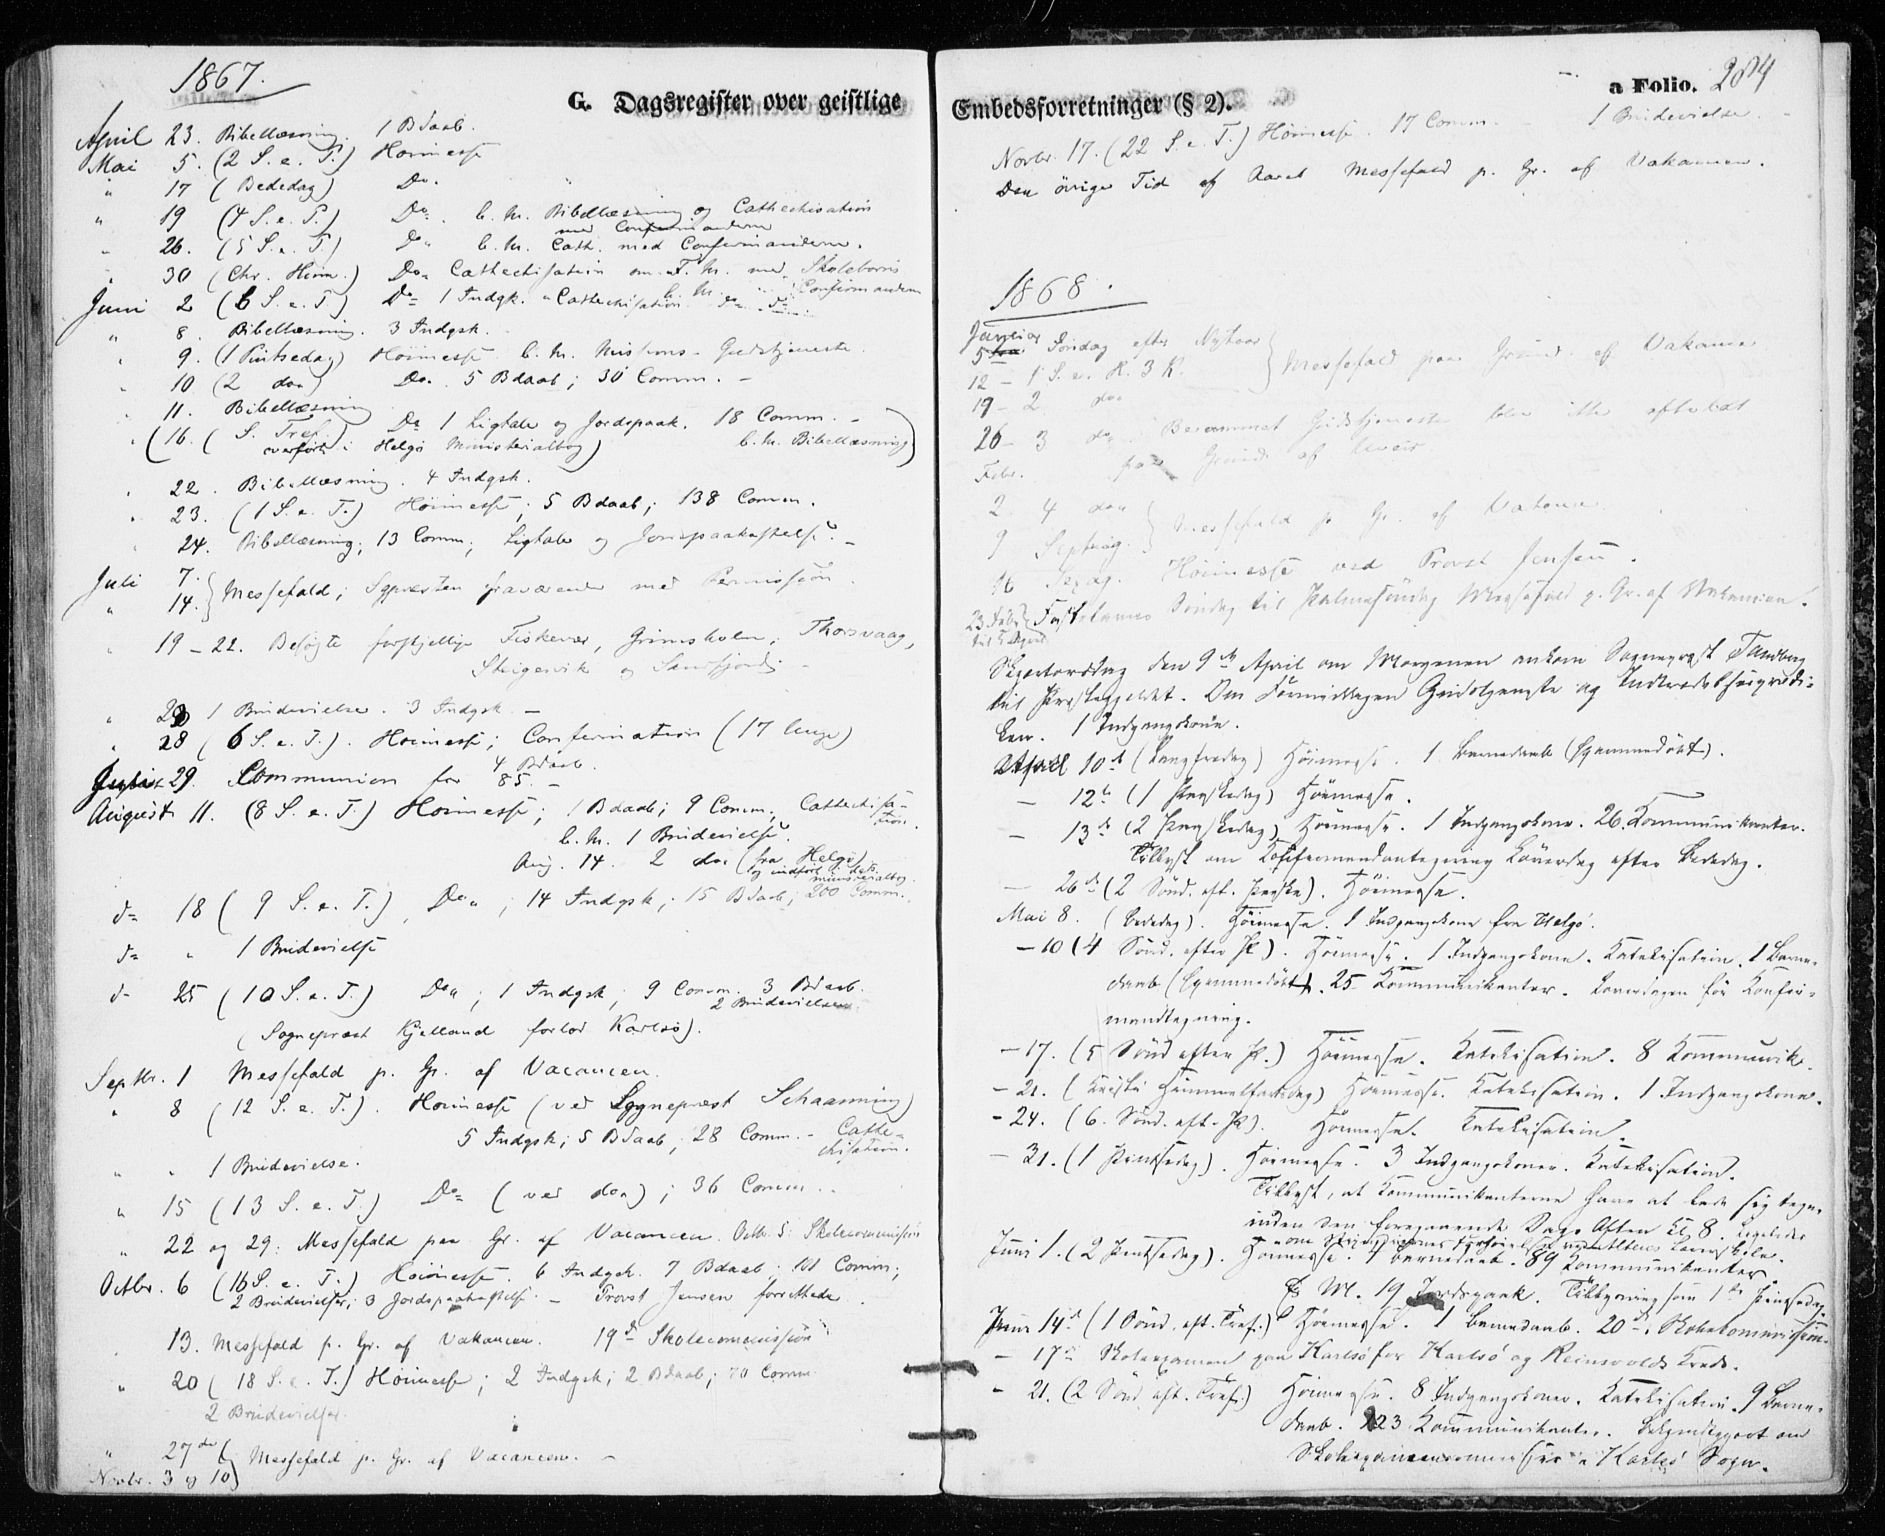 1867.
G. Dagsregister over geistlige
April 23. Bibellæsning. 1 Bdaab.
Mai 5. (2 S. e. P.) Höimesse
" 17 (Bededag) Do.
" 19 (4 S. e. P.) Do. E. M. Bibellæsning og Cathechisation
med Confirmanderne
" 26. (5 S. e. P.) Do. E. M. Cath. med Confirmanderne.
" 30 (Chr. Him.) Do. Cathechisation om F. M. med Skolebörn
E. M. Confirmanderne
Juni 2 (6 S. e. P.) Do. 1 Indgk. Cathechisation do. do.
" 8. Bibellæsning. 3 Indgsk.
" 9. (1 Pintsedag) Höimesse. E. M. Missions-Gudstjeneste
" 10 (2 do.) Do. 5 Bdaab; 30 Comm. –
" 11. Bibellæsning
" (16. (S. Tref.) Do. 1 Ligtale og Jordspaak. 18 Comm. –
overfört i Helgö Ministerialbog) E. M. Bibellæsning)
" 22. Bibellæsning. 4 Indgsk.
" 23. (1 S. e. T.) Höimesse; 5 Bdaab; 138 Comm.
" 24. Bibellæsning; 13 Comm; Ligtale og Jordspaakastelse. –
Juli 7. 14. Messefald; Sgpræsten fraværende med Permission.
" 19–22. Besögte forskjellige Fiskevær, Grimsholm, Thorsvaag,
Skigervik og Sandfjord. –
" 28 1 Brudevielse. 3 Indgsk. –
" 28 (6 S. e. T.). Höimesse; Confirmation (17 Unge)
4 Bdaab.
29. Communion for 85. –
August 11. (8 S. e. T.) Höimesse; 1 Bdaab; 9 Comm; Cathechisa-
tion.
E. M. 1 Brudevielse.
Aug. 14. 2 do. (fra Helgö)
og indfört i dets
ministerialbog.
do 18 (9 S. e. T.), Do.; 14 Indgsk; 15 Bdaab; 200 Comm.
do " 1 Brudevielse
do 25 (10 S. e. T.) Do.; 1 Indgsk; 9 Comm. 3 Bdaab.
2 Brudevielser.
(Sognepræst Kjelland forlod Karlsö).
Septbr. 1 Messefald p. Gr. af Vacancen.
" 8 (12 S. e. T.). Höimesse (ved Sognepræst Schaanning)
5 Indgsk; 5 Bdaab; 28 Comm. – Cathe-
chisation.
" " 1 Brudevielse.
" 15 (13 S. e. T.) Do. (ved do.); 36 Comm.
" 22 og 29. Messefald paa Gr. af Vacancen. Octbr. 5. Skolecommission
Octbr. 6 (16 S. e. T.) Höimesse. 6 Indgsk. 7 Bdaab; 101 Comm;
2 Brudevielser; 3 Jordspaakastelse. – Provst Jensen forrettede.
13. Messefald p. Gr. af Vakancen. 19de Skolecommission
" 20 (18 S. e. T.) Höimesse; 2 Indgsk; 2 Bdaab; 70 Comm
2 Brudevielser.
" 27de Messefald p. Gr. af Vacancen. –
Novbr. 3 og 10)
Embedsforretninger (§ 2).
a Folio. 204
Novbr. 17. (22 S. e. T.) Höimesse. 17 Comm. – 1 Brudevielse.
Den övrige Tid af Aaret Messefald p. Gr. af Vakancen.
1868.
Januar
5 Söndag efter Nytaar
12 – 1 S. e. H. 3 K. Messefald paa Grund af Vakance
19 – 2 do.
26 – 3 do. Berammet Gudstjeneste blev ikke afholdt
Febr. paa Grund af Uveir
2 4 do. Messefald p. Gr. af Vakance
9 Septuag.
16 Sexag. Höimesse ved Provst Jensen.
23 Febr. til 5 April Fastelavns Söndag til Palmesöndag Messefald p. Gr. af Vakancen.
Skjærtorsdag den 9de April om Morgenen ankom Sognepræst Tandberg
til Præstegjeldet. Om Formiddagen Gudstjeneste og Indtrædelsesprædi-
ken. 1 Indgangskone.
April 10de (Langfredag) Höimesse. 1 Barnedaab (Hjemmedöbt).
– 12te (1 Paaskedag) Höimesse.
– 13de (2 Paaskedag) Höimesse. 1 Indgangskone. 26 Kommunikanter.
Tillyst om Konfirmandantegning Löverdag efter Bededag.
– 26de (2 Sönd. eft. Paaske). Höimesse.
Mai 8. (Bededag). Höimesse. 1 Indgangskone fra Helgö.
– 10 (4 Sönd. efter P.). Höimesse. 1 Indgangskone. Katekisation. 1 Barne-
daab (Hjemmedöbt). 25 Kommunikanter. Löverdagen för Konfir-
mandtegning.
– 17. (5 Sönd efter P.) Höimesse. Katekisation. 8 Kommunik.
– 21. (Kristi Himmelfartsdag) Höimesse. Katekisation. 1 Indgangskone.
– 24. (6. Sönd. eft. P.). Höimesse. Katekisation.
– 31. (1 Pintsedag). Höimesse. 3 Indgangskoner. Katekisation.
Tillyst, at Kommunikanterne have at lade sig tegne
inden den foregaaende Dags Aften Kl 8. Ligeledes
Juni 1. (2 Pintsedag). Höimesse. 1 Barnedaab. 89 Kommunikanter.
E. M. 19 Jordspaak. Tillysning som 1ste Pintsedag.
Juni 14de (1 Sönd. eft. Tref.) Höimesse. 1 Barnedaab. 20de. Skolekommission.
– 17de Skoleexamen paa Karlsö for Karlsö og Reinsvolds Kreds.
– 21. (2 Sönd eft. Tref.) Höimesse. 8 Indgangskoner. Katekisation. 9 Barne-
daab. 123 Kommunikanter. Bekjendtgjort om
Karlsö Sogn.